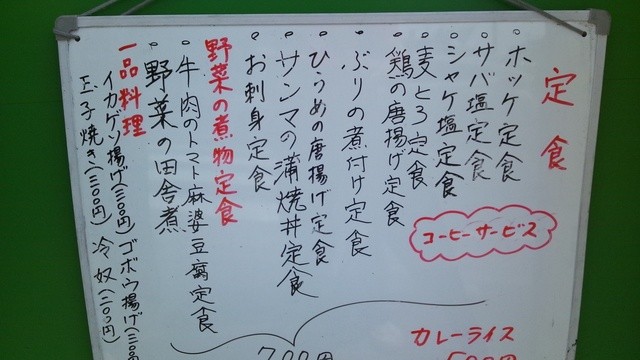 定食
・ホッケ定食
・サバ塩定食
・シャケ塩定食
・麦とろ定食
・鶏の唐揚げ定食
・ぶりの煮付け定食
・ひらめの唐揚げ定食
・サンマの蒲焼丼定食
・お刺身定食
コーヒーサービス
野菜の煮物定食
・牛肉のトマト麻婆豆腐定食
・野菜の田舎煮
一品料理
イカゲソ揚げ(三〇〇円) ゴボウ揚げ(三〇〇
玉子焼き(三〇〇円) 冷奴(二〇〇円)
700円
カレーライス